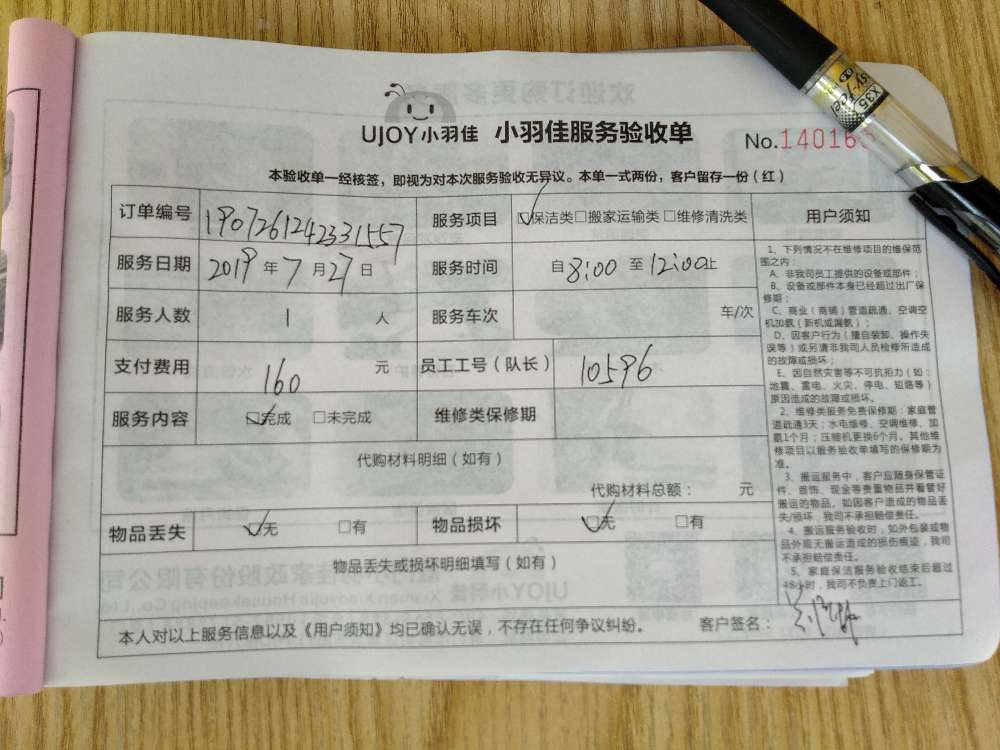 UJOY小羽佳 小羽佳服务验收单
No.14016
本验收单一经核签，即视为对本次服务验收无异议。本单一式两份，客户留存一份（红）
订单编号 1907261242331557 服务项目 ☑保洁类□搬家运输类□维修清洗类
服务日期 2019年7月27日 服务时间 自8:00至12:00止
服务人数 1 人 服务车次 车/次
支付费用 160 元 员工工号（队长） 10596
服务内容 ☑完成 □未完成 维修类保修期
代购材料明细（如有）
代购材料总额： 元
物品丢失 ☑无 □有 物品损坏 ☑无 □有
物品丢失或损坏明细填写（如有）
本人对以上服务信息以及《用户须知》均已确认无误，不存在任何争议纠纷。 客户签名：
用户须知
1、下列情况不在维修项目的维保范
围之内：
A、非我司员工提供的设备或部件；
B、设备或部件本身已经超过出厂保
修期；
C、商业（商铺）管道疏通、空调空
机加氨（新机或漏氨）；
D、因客户行为（擅自装卸、操作失
误等）或另请非我司人员检修所造成
的故障或损坏；
E、因自然灾害等不可抗拒力（如：
地震、雷电、火灾、停电、短路等）
原因造成的故障或损坏。
2、维修类服务免费保修期：家庭管
道疏通3天；水电维修、空调维修、加
氨1个月；压缩机更换6个月。其他维
修项目以服务验收单填写的保修期为
准。
3、搬运服务中，客户应随身保管证
件、首饰、现金等贵重物品并看管好
搬运的物品。如因客户造成的物品丢
失/损坏，我司不承担赔偿责任。
4、搬运服务验收时，如外包装或物
品外观无搬运造成的损伤痕迹，我司
不承担赔偿责任。
5、家庭保洁服务验收结束后超过
48小时，我司不负责上门返工。
X35
0.5